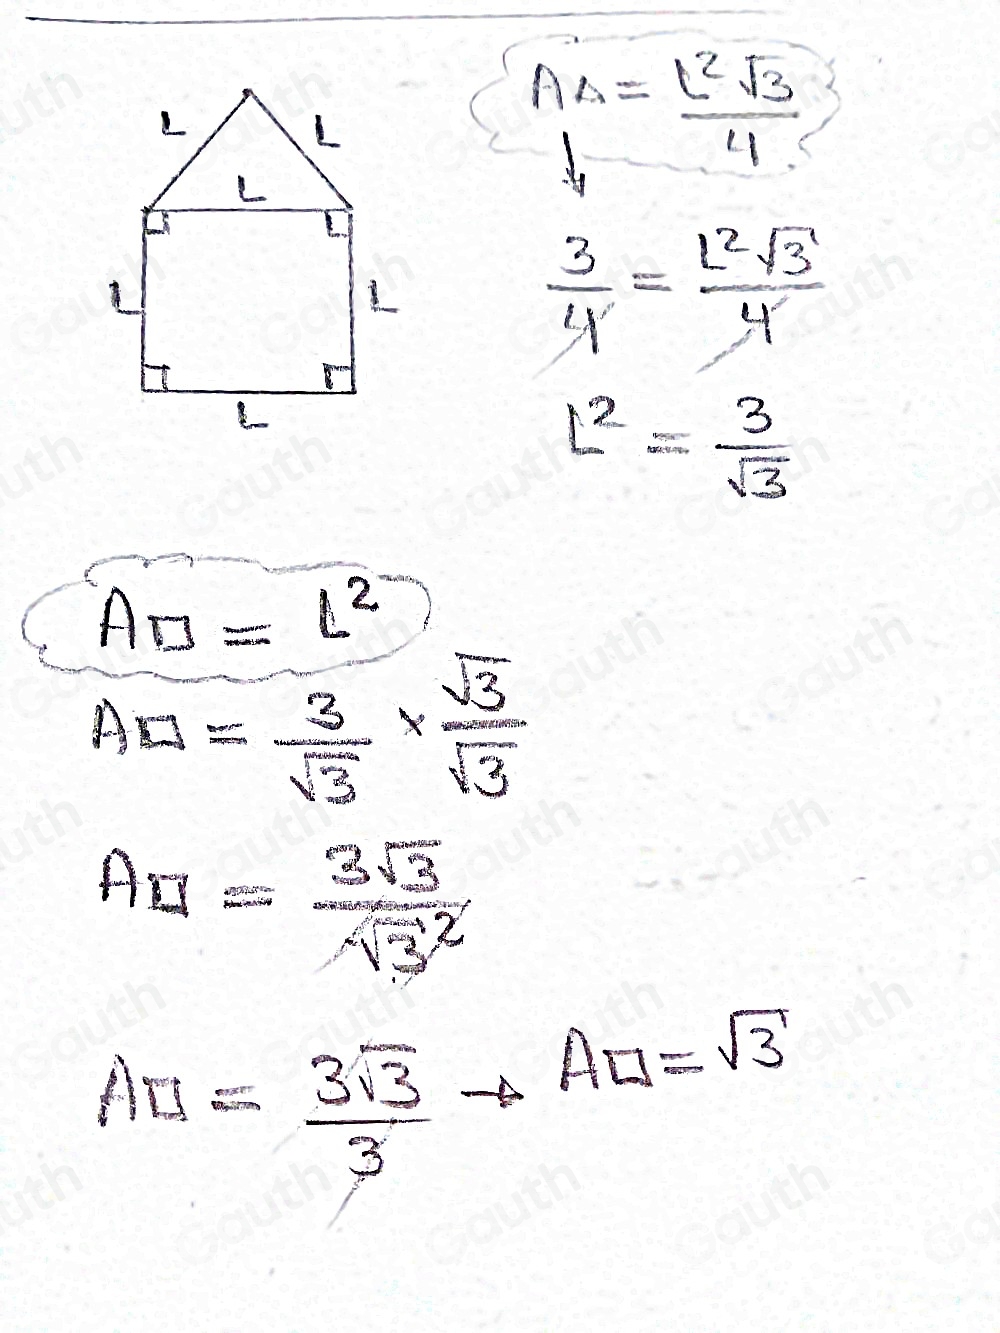 L L
L
L L
L
A△ = L²√3/4
↓
3/4 = L²√3/4
L² = 3/√3
A□ = L²
A□ = 3/√3 × √3/√3
A□ = 3√3/√3²
A□ = 3√3/3 → A□ = √3
Gauth